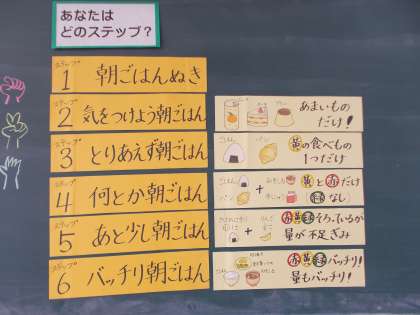 あなたは
どのステップ？
ステップ
1 朝ごはんぬき
ステップ
2 気をつけよう朝ごはん
あまいもの
だけ！
ステップ
3 とりあえず朝ごはん
ごはん パン
黄の食べもの
1つだけ
ステップ
4 何とか朝ごはん
ごはん
パン
+
黄と赤だけ
(緑なし)
ステップ
5 あと少し朝ごはん
+
赤黄緑そろっているが
量が不足ぎみ
ステップ
6 バッチリ朝ごはん
赤黄緑バッチリ！
量もバッチリ！